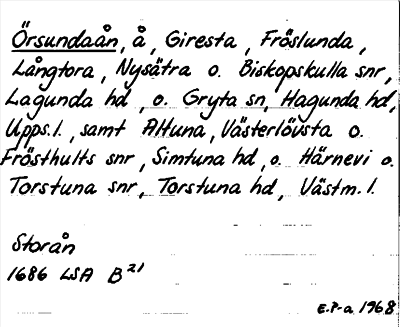 Örsundaån, å, Giresta, Fröslunda,
Långtora, Nysätra o. Biskopskulla snr,
Lagunda hd, o. Gryta sn, Hagunda hd,
Upps.l., samt Altuna, Västerlövsta o.
Frösthults snr, Simtuna hd, o. Härnevi o.
Torstuna snr, Torstuna hd, Västm. l.
Storån
1686 LSA B²¹
E.P-a 1968